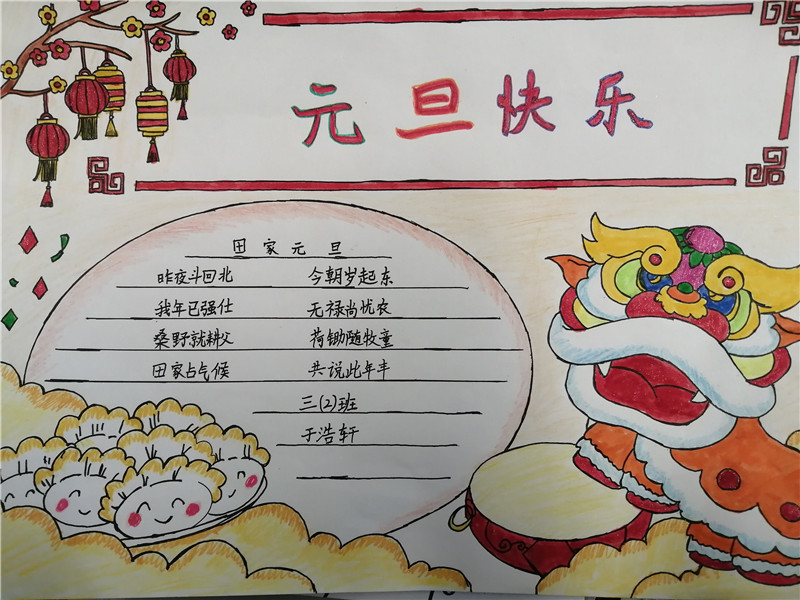 元旦快乐
田家元旦
昨夜斗回北 今朝岁起东
我年已强仕 无禄尚忧农
桑野就耕父 荷锄随牧童
田家占气候 共说此年丰
三(2)班
于浩轩